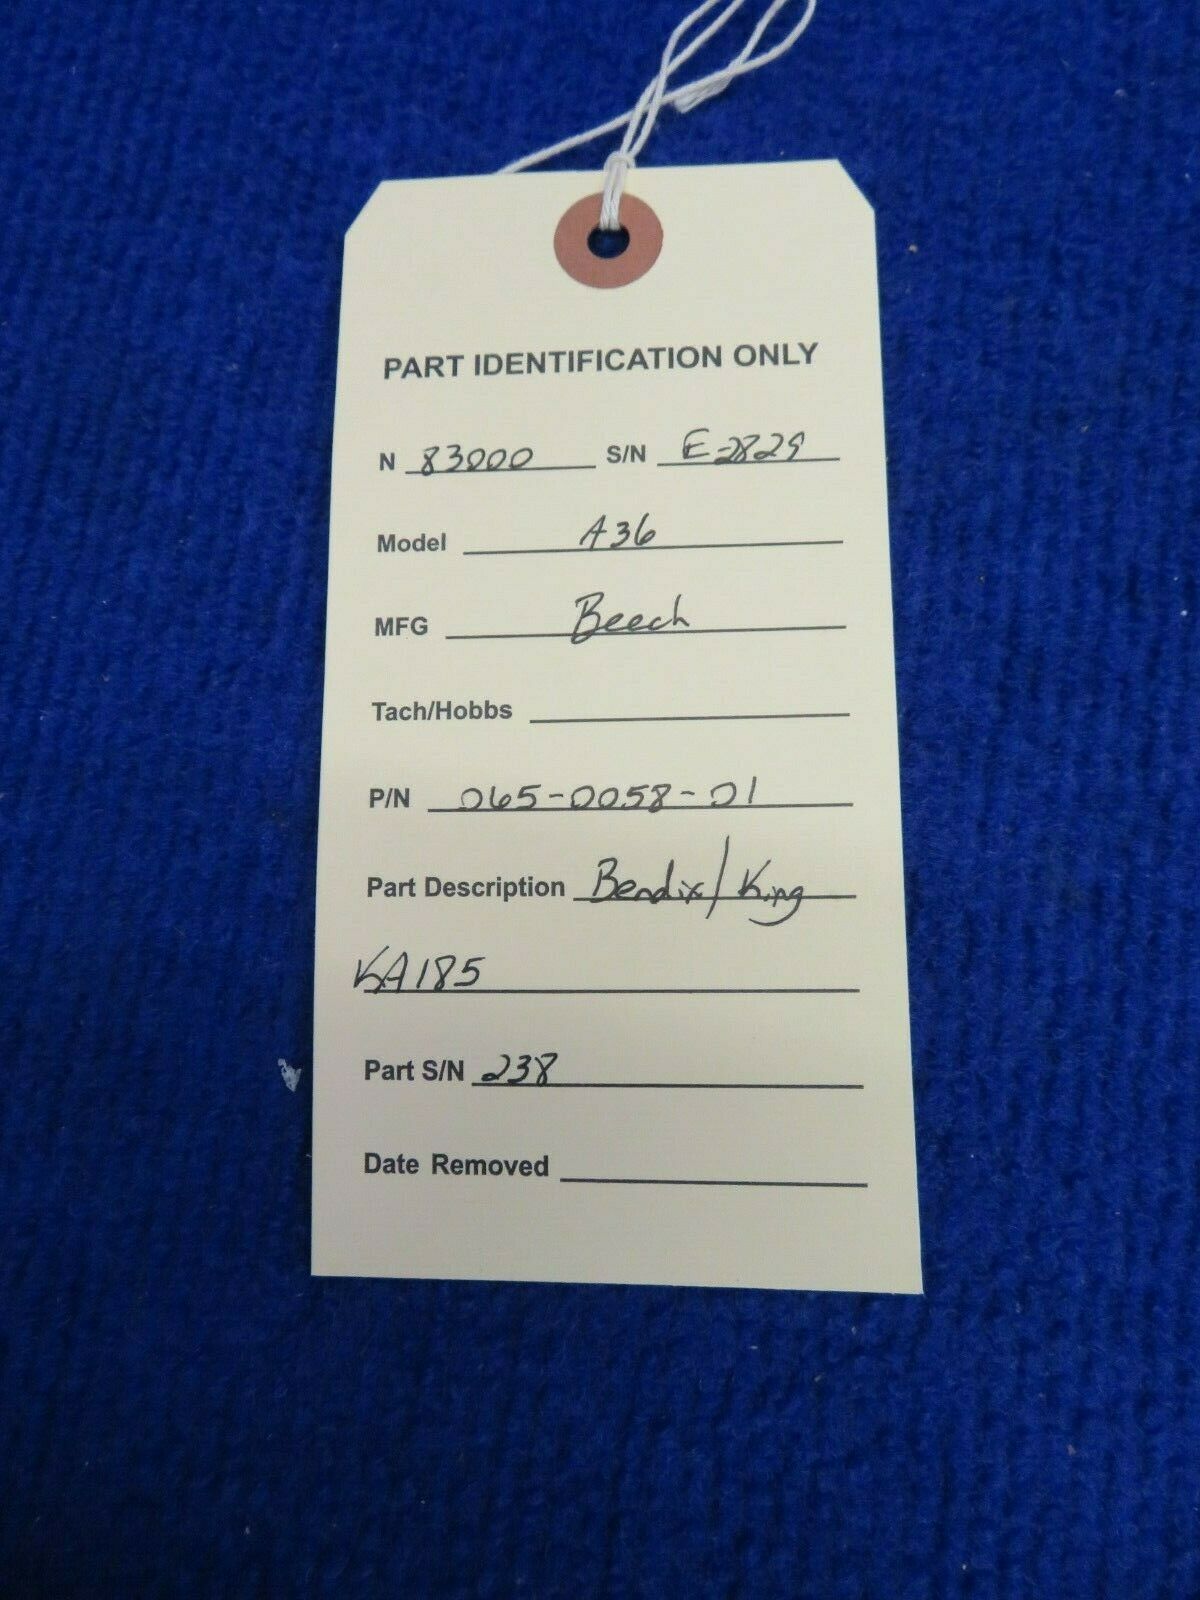 PART IDENTIFICATION ONLY
N 83000 S/N E-2829
Model A36
MFG Beech
Tach/Hobbs
P/N 065-0058-01
Part Description Bendix/King
KA185
Part S/N 238
Date Removed